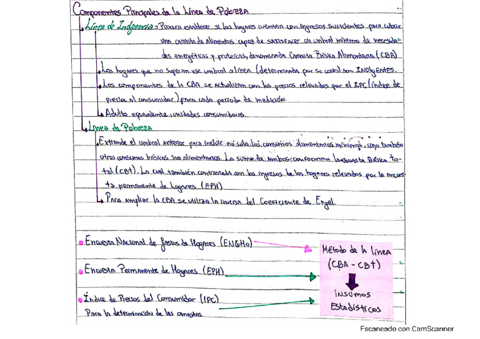 Componentes Principales de la Línea de Pobreza
Línea de Indigencia = Procura establecer si los hogares cuentan con ingresos suficientes para cubrir
una canasta de alimentos capaz de satisfacer un umbral mínimo de necesida-
des energéticas y proteicas, denominada Canasta Básica Alimentaria (CBA)
Los hogares que no superan ese umbral o línea (determinada por su costo) son INDIGENTES.
Los componentes de la CBA se actualizan con los precios relevados por el IPC (índice de
precio al consumidor) para cada período de medición
Adulto equivalente: unidades consumidoras.
Línea de Pobreza
Extiende el umbral anterior para incluir no solo los consumos alimentarios mínimos, sino también
otros consumos básicos no alimentarios. La suma de ambos conforma la Canasta Básica to-
tal (CBT). La cual también contrastada con los ingresos de los hogares relevados por la encues
ta permanente de hogares (EPH)
Para ampliar la CBA se utiliza la inversa del Coeficiente de Engel
Encuesta Nacional de Gastos de Hogares (ENGHo)
Encuesta Permanente de Hogares (EPH)
Índice de Precios del Consumidor (IPC)
Para la determinación de las canastas
Método de la línea
(CBA - CBT)
insumos
Estadísticos
Escaneado con CamScanner